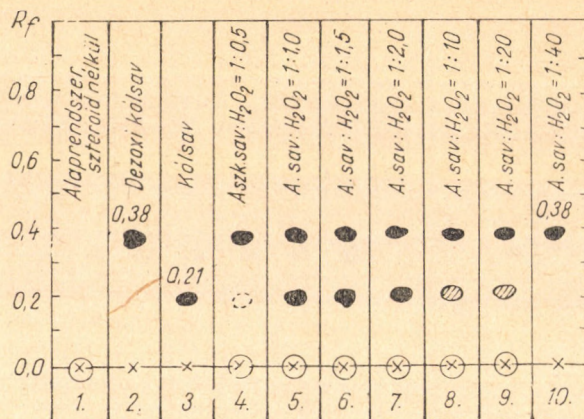 Rf
0,8
0,6
0,4
0,2
0,0
Alaprendszer,
szteroid nélkül
Dezoxi kólsav
Kólsav
Aszk.sav:H2O2 = 1:0,5
A. sav:H2O2 = 1:1,0
A. sav:H2O2 = 1:1,5
A. sav:H2O2 = 1:2,0
A. sav:H2O2 = 1:10
A. sav:H2O2 = 1:20
A. sav:H2O2 = 1:40
0,38
0,21
0,38
1. 2. 3 4. 5. 6. 7. 8. 9. 10.